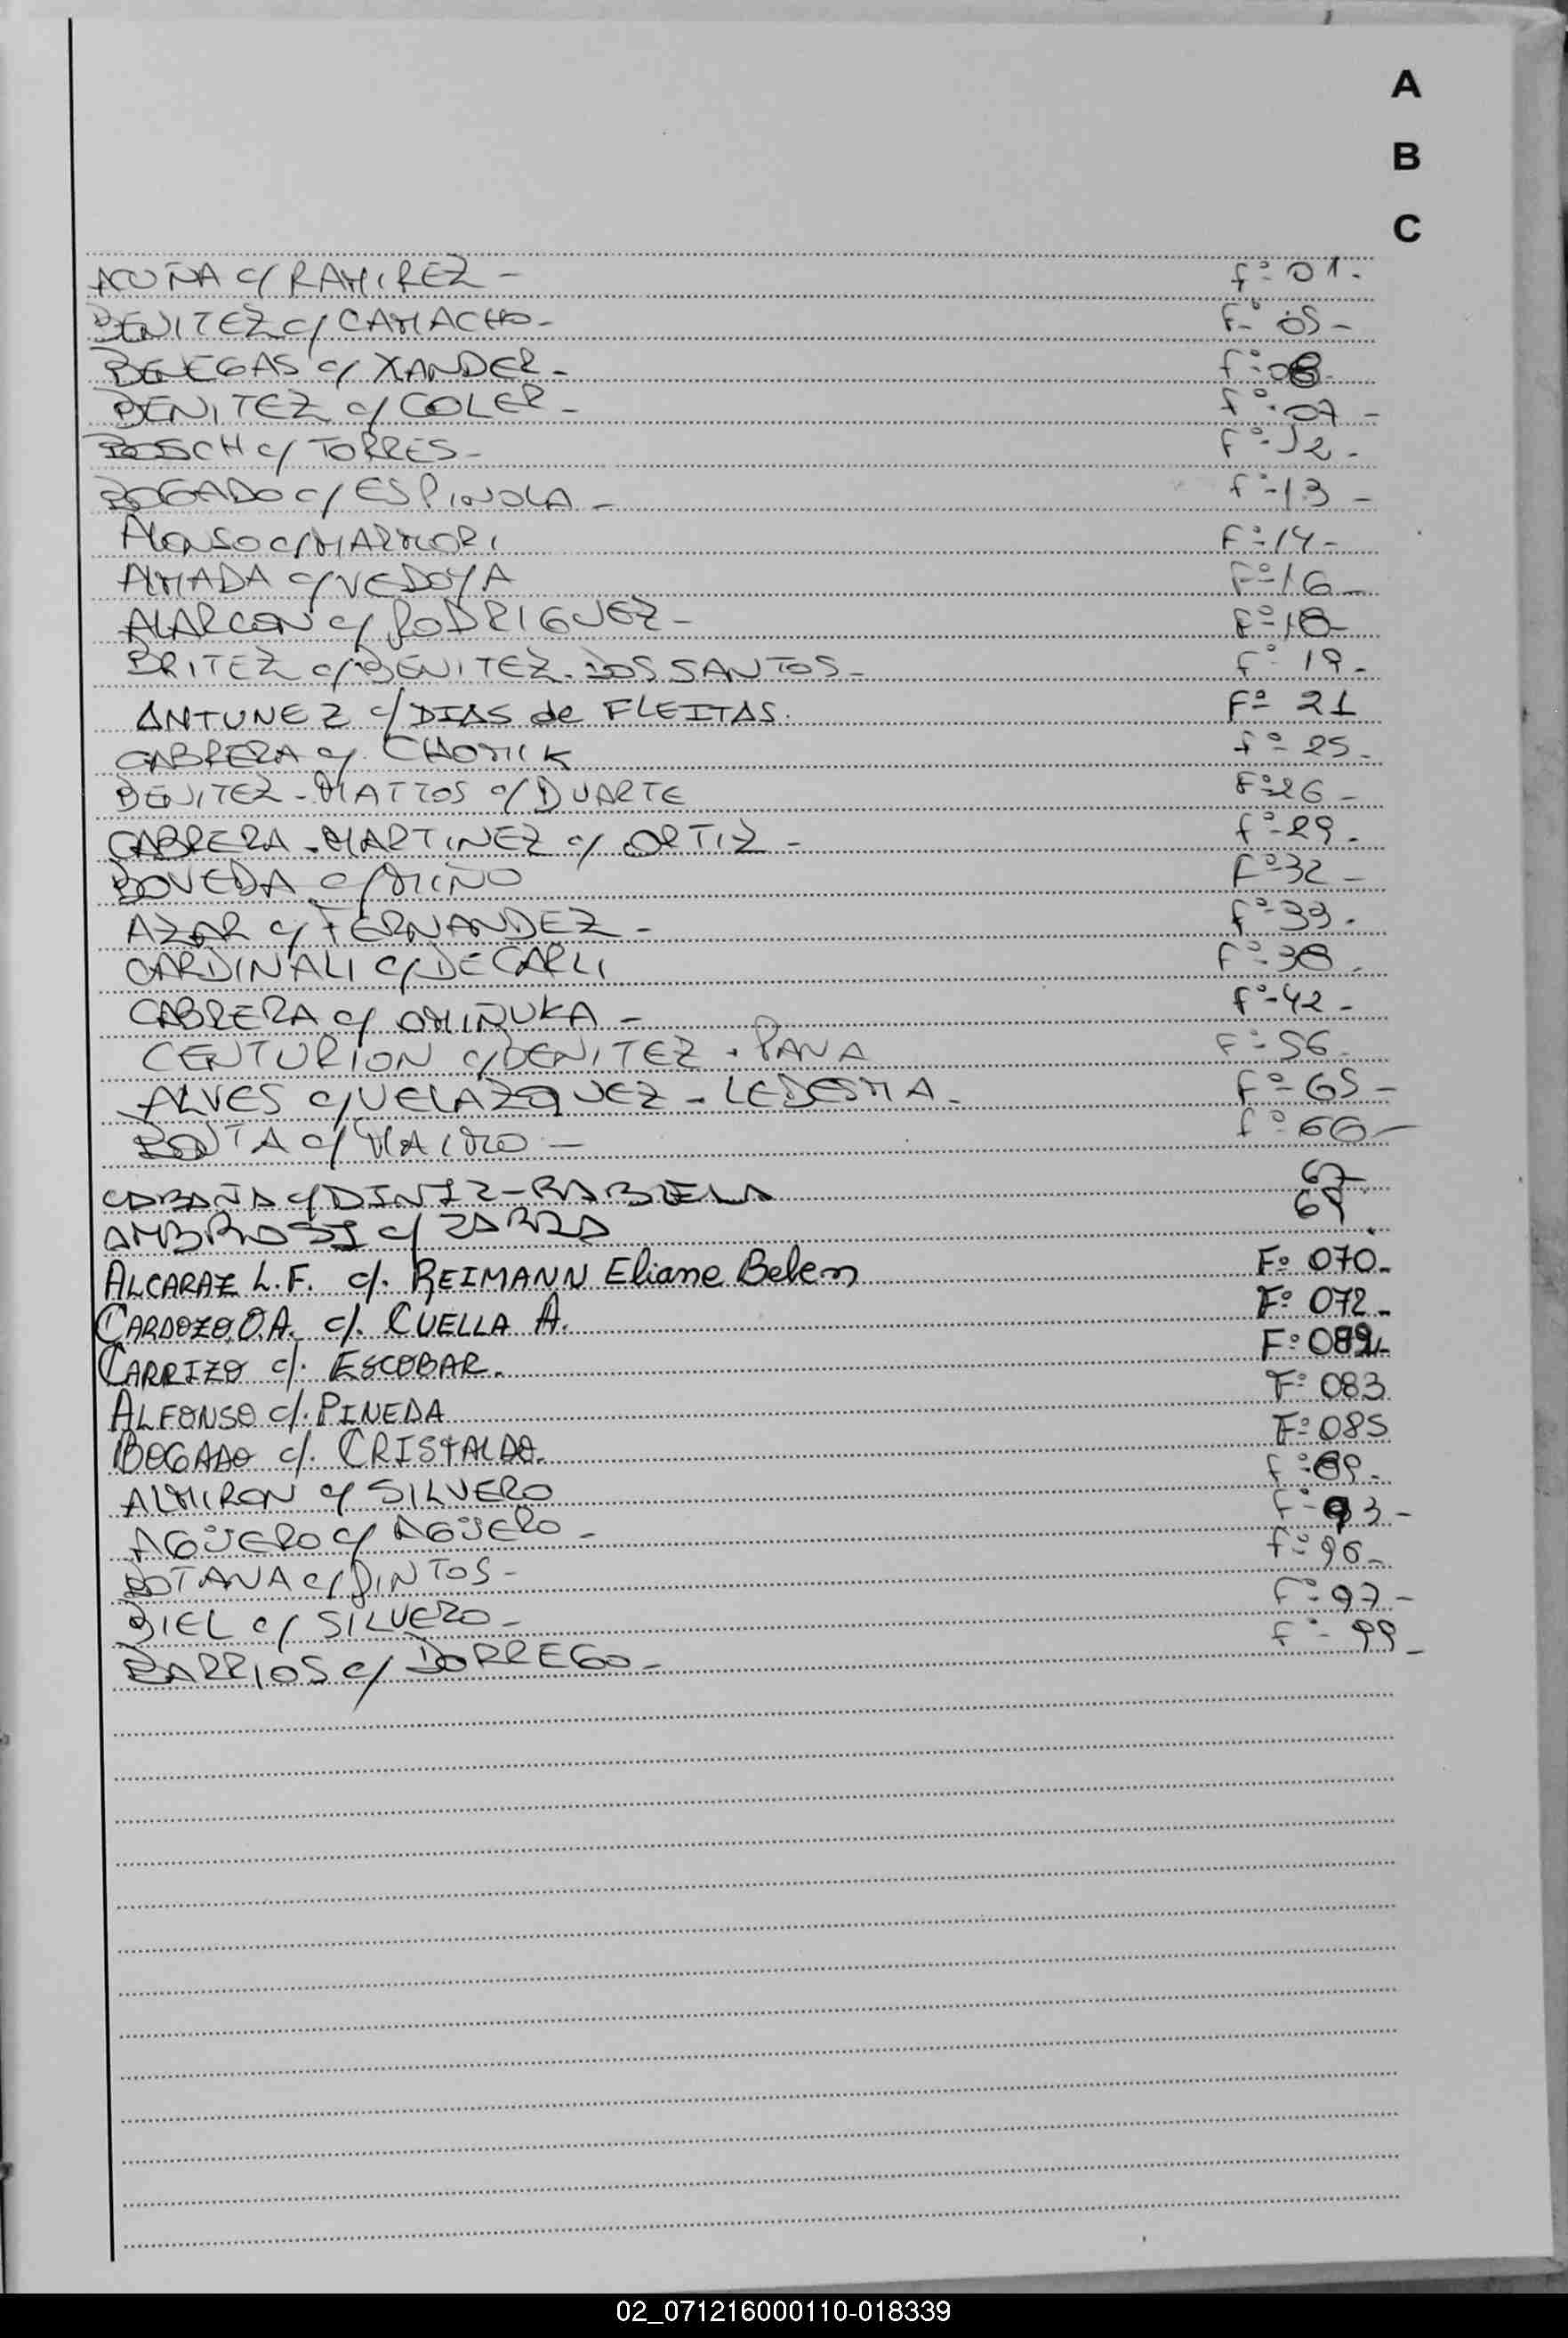 A
B
C
ACUÑA c/ RAMIREZ - fº 01.
BENITEZ c/ CAMACHO - fº 05 -
BENEGAS c/ XANDER - fº 06
BENITEZ c/ COLER - fº 07 -
BOSCH c/ TORRES - fº 12 -
BOGADO c/ ESPINOLA - fº 13 -
ALONSO c/ MARMORI Fº 14 -
ALMADA c/ VEDOYA Fº 16 -
ALARCON c/ RODRIGUEZ - Fº 18 -
BRITEZ c/ BENITEZ - DOS SANTOS - fº 19 -
ANTUNEZ c/ DIAS de FLEITAS. Fº 21
CABRERA c/ CHOMIK fº 25 -
BENITEZ - MATTOS c/ DUARTE Fº 26 -
CABRERA - MARTINEZ c/ ORTIZ - fº 29 -
BOVEDA c/ MIÑO Fº 32 -
AZAR c/ FERNANDEZ - fº 33 -
CARDINALI c/ DECARLI fº 38 -
CABRERA c/ fº 42 -
CENTURION c/ BENITEZ - PAVA Fº 56 -
ALVES c/ VELAZQUEZ - LEDESMA - Fº 65 -
c/ fº 66 -
CABAÑA c/ DINIZ - RABELA 67
AMBROSI c/ ZARZA 69
ALCARAZ L.F. c/. REIMANN Eliane Belen Fº 070 -
CARDOZO O.A. c/. CUELLA A. Fº 072 -
CARRIZO c/. ESCOBAR. Fº
ALFONSO c/. PINEDA Fº 083
BOGADO c/. CRISTALDO. Fº 085
ALMIRON c/ SILVERO fº 89 -
AGÜERO c/ AGÜERO - fº 93 -
BOTANA c/ PINTOS - fº 96 -
BIEL c/ SILVERO - fº 97 -
BARRIOS c/ DORREGO - fº 99 -
02_071216000110-018339